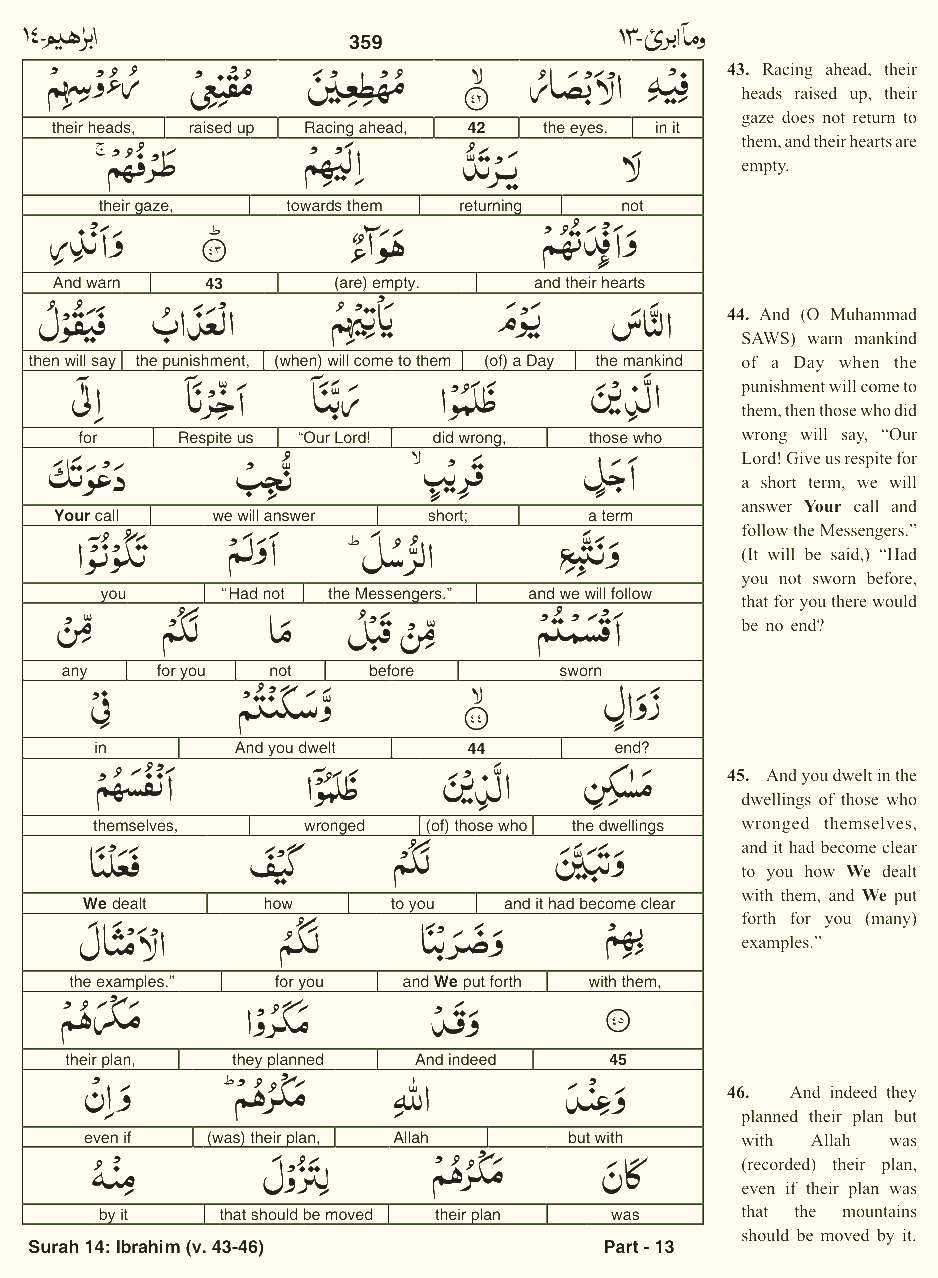 وما ابرئ-١٣ 359 ابراهيم-١٤
فِيْهِ الْاَبْصَارُ ۙ ٤٢ مُهْطِعِيْنَ مُقْنِعِيْ رُءُوْسِهِمْ
in it the eyes. 42 Racing ahead, raised up their heads,
لَا يَرْتَدُّ اِلَيْهِمْ طَرْفُهُمْ ۚ
not returning towards them their gaze,
وَاَفْـِٕدَتُهُمْ هَوَآءٌ ؕ ٤٣ وَاَنْذِرِ
and their hearts (are) empty. 43 And warn
النَّاسَ يَوْمَ يَاْتِيْهِمُ الْعَذَابُ فَيَقُوْلُ
the mankind (of) a Day (when) will come to them the punishment, then will say
الَّذِيْنَ ظَلَمُوْا رَبَّنَاۤ اَخِّرْنَاۤ اِلٰۤى
those who did wrong, “Our Lord! Respite us for
اَجَلٍ قَرِيْبٍ ۙ نُّجِبْ دَعْوَتَكَ
a term short; we will answer Your call
وَنَتَّبِعِ الرُّسُلَ ؕ اَوَلَمْ تَكُوْنُوْۤا
and we will follow the Messengers.” “Had not you
اَقْسَمْتُمْ مِّنْ قَبْلُ مَا لَكُمْ مِّنْ
sworn before not for you any
زَوَالٍ ۙ ٤٤ وَّسَكَنْتُمْ فِيْ
end? 44 And you dwelt in
مَسٰكِنِ الَّذِيْنَ ظَلَمُوْۤا اَنْفُسَهُمْ
the dwellings (of) those who wronged themselves,
وَتَبَيَّنَ لَكُمْ كَيْفَ فَعَلْنَا
and it had become clear to you how We dealt
بِهِمْ وَضَرَبْنَا لَكُمُ الْاَمْثَالَ
with them, and We put forth for you the examples.”
٤٥ وَقَدْ مَكَرُوْا مَكْرَهُمْ
45 And indeed they planned their plan,
وَعِنْدَ اللّٰهِ مَكْرُهُمْ ؕ وَاِنْ
but with Allah (was) their plan, even if
كَانَ مَكْرُهُمْ لِتَزُوْلَ مِنْهُ
was their plan that should be moved by it
Surah 14: Ibrahim (v. 43-46) Part - 13
43. Racing ahead, their
heads raised up, their
gaze does not return to
them, and their hearts are
empty.
44. And (O Muhammad
SAWS) warn mankind
of a Day when the
punishment will come to
them, then those who did
wrong will say, “Our
Lord! Give us respite for
a short term, we will
answer Your call and
follow the Messengers.”
(It will be said,) “Had
you not sworn before,
that for you there would
be no end?
45. And you dwelt in the
dwellings of those who
wronged themselves,
and it had become clear
to you how We dealt
with them, and We put
forth for you (many)
examples.”
46. And indeed they
planned their plan but
with Allah was
(recorded) their plan,
even if their plan was
that the mountains
should be moved by it.